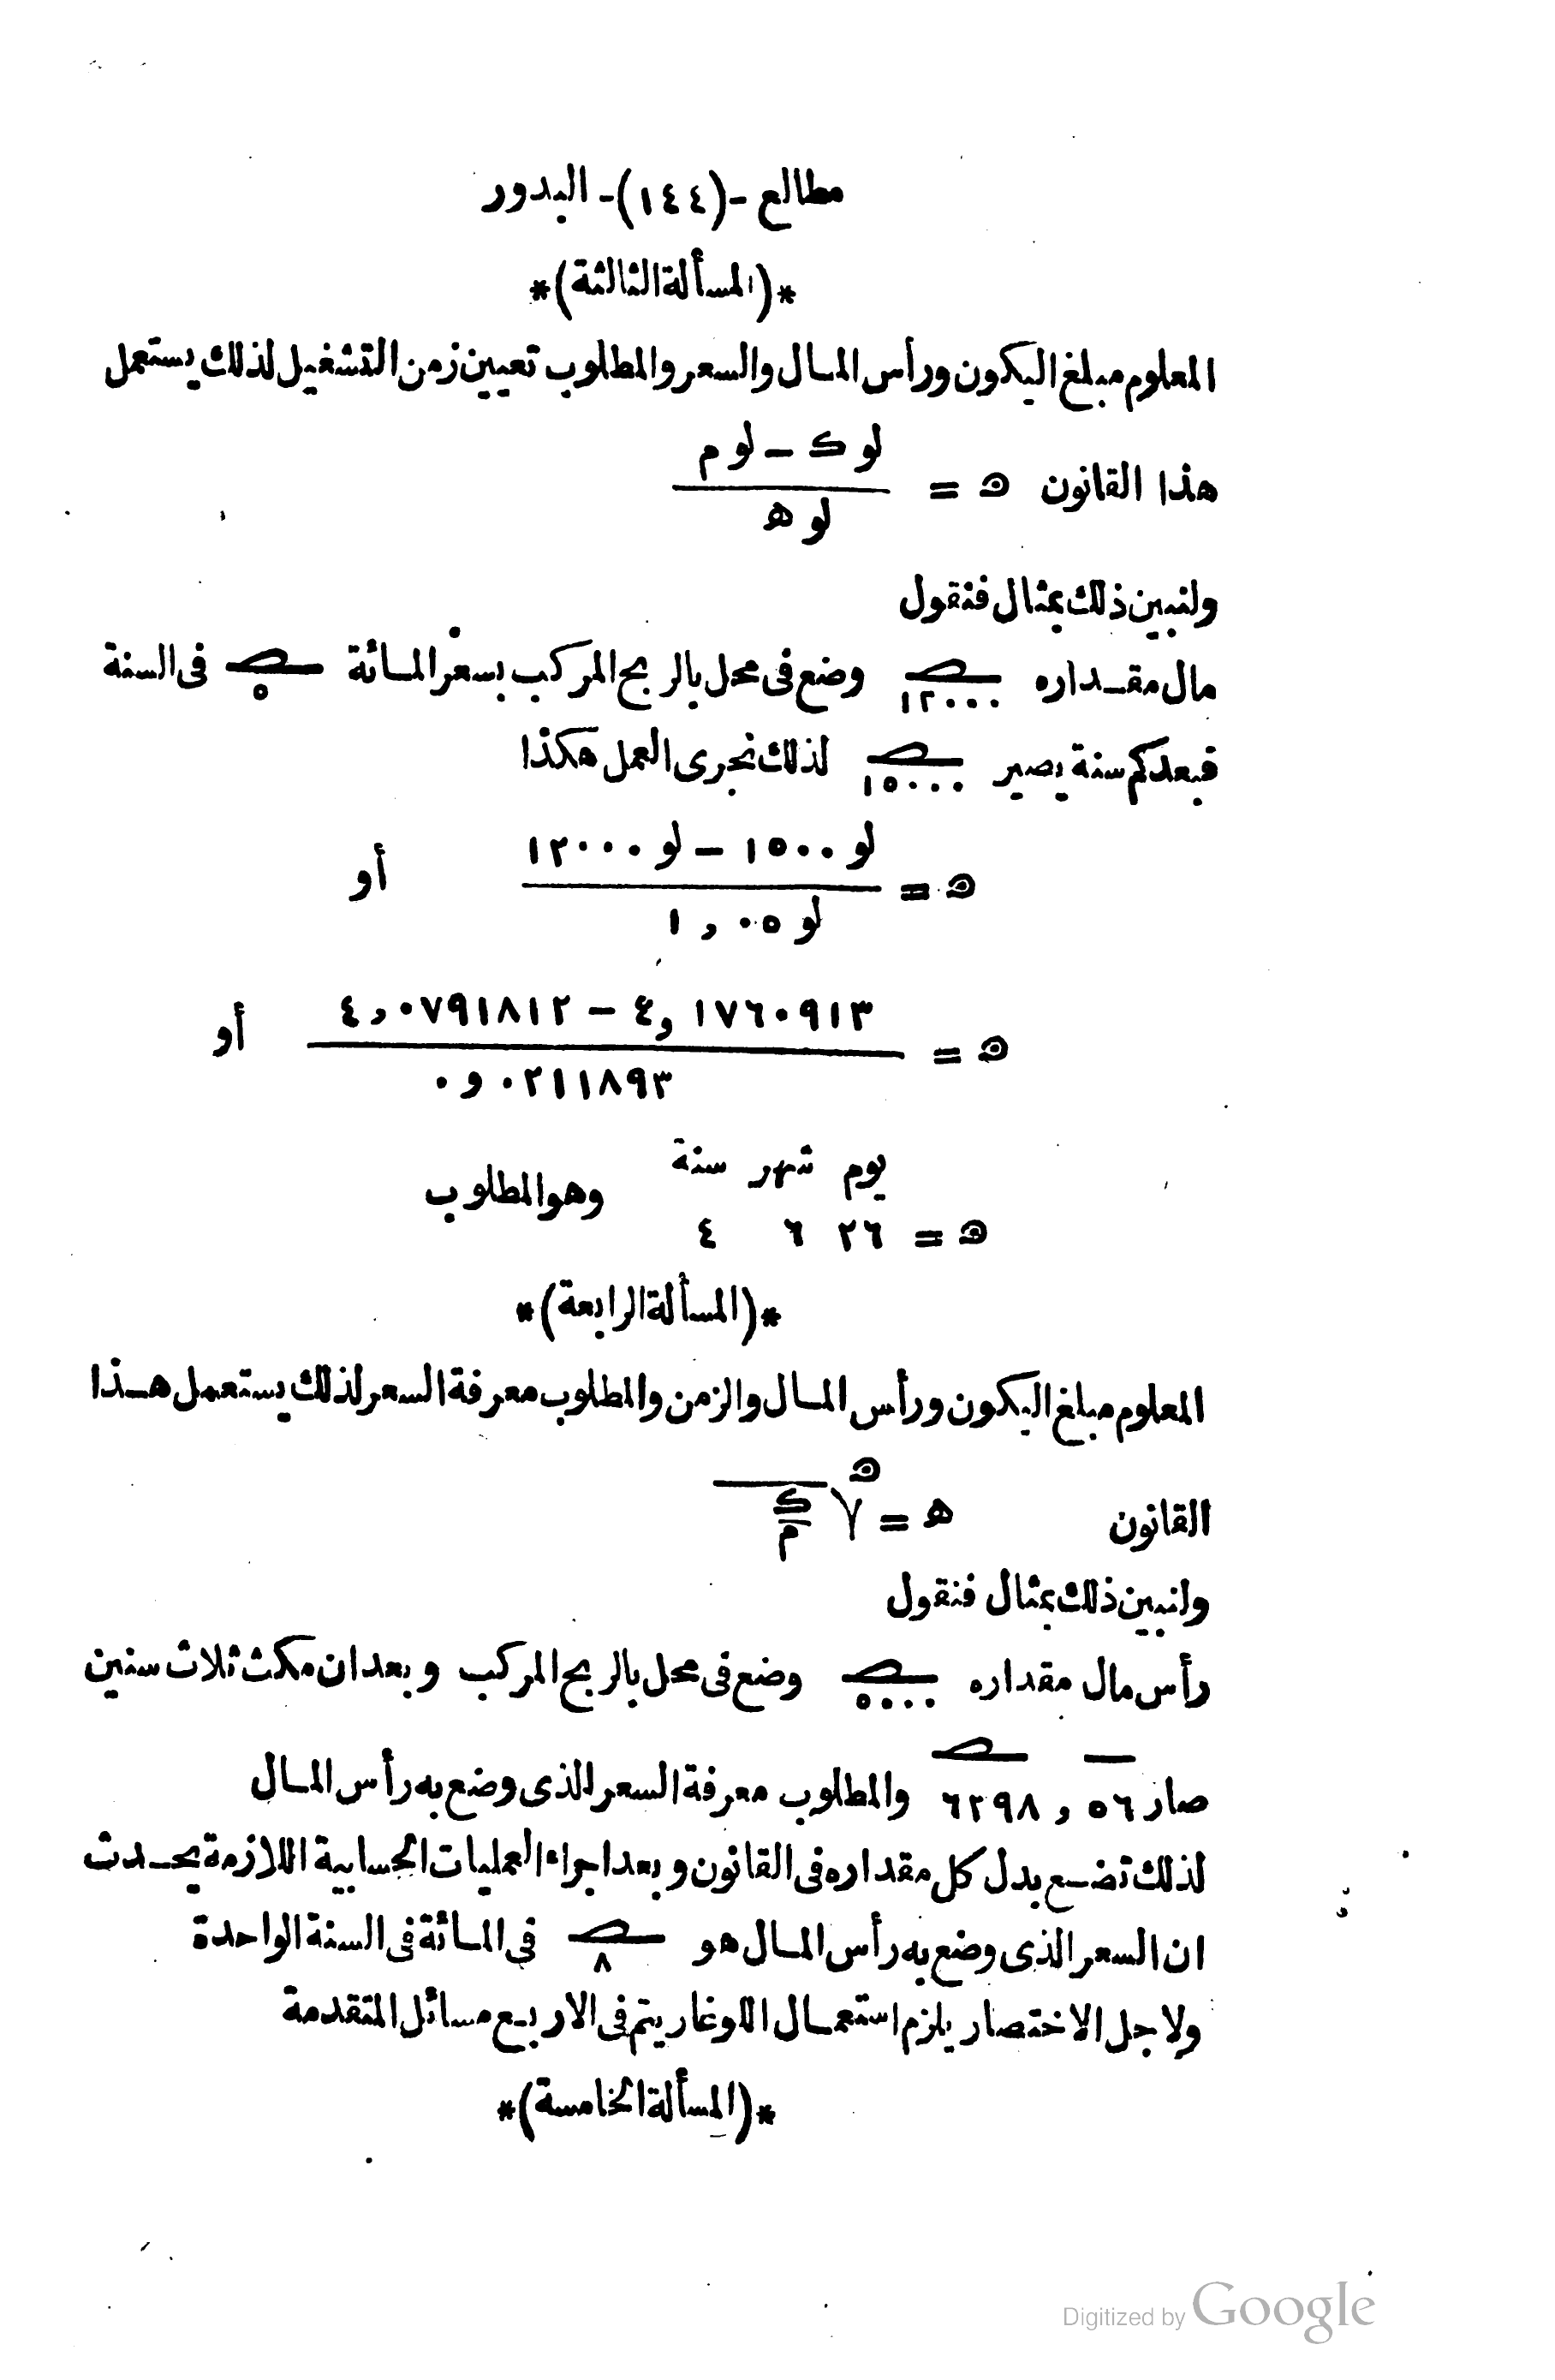 مطالع -(١٤٤)- البدور
*(المسألة الثالثة)*
المعلوم مبلغ اليكون ورأس المال والسعر والمطلوب تعيين زمن التشغيل لذلك يستعمل
لو ك - لو م
هذا القانون ﻫ =
لو ه
ولنبين ذلك بمثال فنقول
مال مقداره ١٢٠٠٠ وضع فى محل بالربح المركب بسعر المائة ٥ فى السنة
فبعد كم سنة يصير ١٥٠٠٠ لذلك نجرى العمل هكذا
لو ١٥٠٠٠ - لو ١٢٠٠٠
ﻫ = أو
لو ١,٠٥
٤,١٧٦٠٩١٣ - ٤,٠٧٩١٨١٢
ﻫ = أو
٠,٠٢١١٨٩٣
يوم شهر سنة
وهو المطلوب
ﻫ = ٢٦ ٦ ٤
*(المسألة الرابعة)*
المعلوم مبلغ اليكون ورأس المال والزمن والمطلوب معرفة السعر لذلك يستعمل هذا
القانون ه = √ ك/م
ولنبين ذلك بمثال فنقول
رأس مال مقداره ٥٠٠٠ وضع فى محل بالربح المركب وبعد ان مكث ثلاث سنين
صار ٥٦ و ٦٢٩٨ والمطلوب معرفة السعر الذى وضع به رأس المال
لذلك تضع بدل كل مقداره فى القانون وبعد اجراء العمليات الحسابية اللازمة يحدث
ان السعر الذى وضع به رأس المال هو ٨ فى المائة فى السنة الواحدة
ولاجل الاختصار يلزم استعمال اللوغاريتم فى الاربع مسائل المتقدمة
*(المسألة الخامسة)*
Digitized by Google